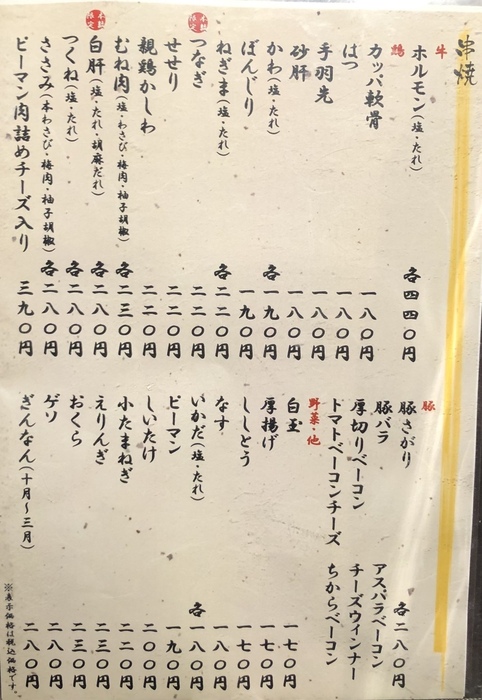 串焼
牛
ホルモン(塩・たれ) 各四四〇円
鶏
カッパ軟骨 一八〇円
はつ 一八〇円
手羽先 一八〇円
砂肝 一八〇円
かわ(塩・たれ) 各一九〇円
ぼんじり 一九〇円
ねぎま(塩・たれ) 各二二〇円
つなぎ 二二〇円
せせり 二二〇円
親鶏かしわ 二二〇円
むね肉(塩・わさび・梅肉・柚子胡椒) 各二三〇円
白肝(塩・たれ・胡麻だれ) 各二八〇円
つくね(塩・たれ) 各二八〇円
ささみ(本わさび・梅肉・柚子胡椒) 各二八〇円
ピーマン肉詰めチーズ入り 三九〇円
豚
豚さがり
豚バラ アスパラベーコン 各二八〇円
厚切りベーコン チーズウインナー
トマトベーコンチーズ ちからベーコン
野菜・他
白玉 一七〇円
厚揚げ 一七〇円
ししとう 一七〇円
なす 一八〇円
いかだ(塩・たれ) 各一八〇円
ピーマン 一九〇円
しいたけ 二〇〇円
小たまねぎ 二二〇円
えりんぎ 二三〇円
おくら 二三〇円
ゲソ 二八〇円
ぎんなん(十月〜三月) 二八〇円
※表示価格は税込価格です